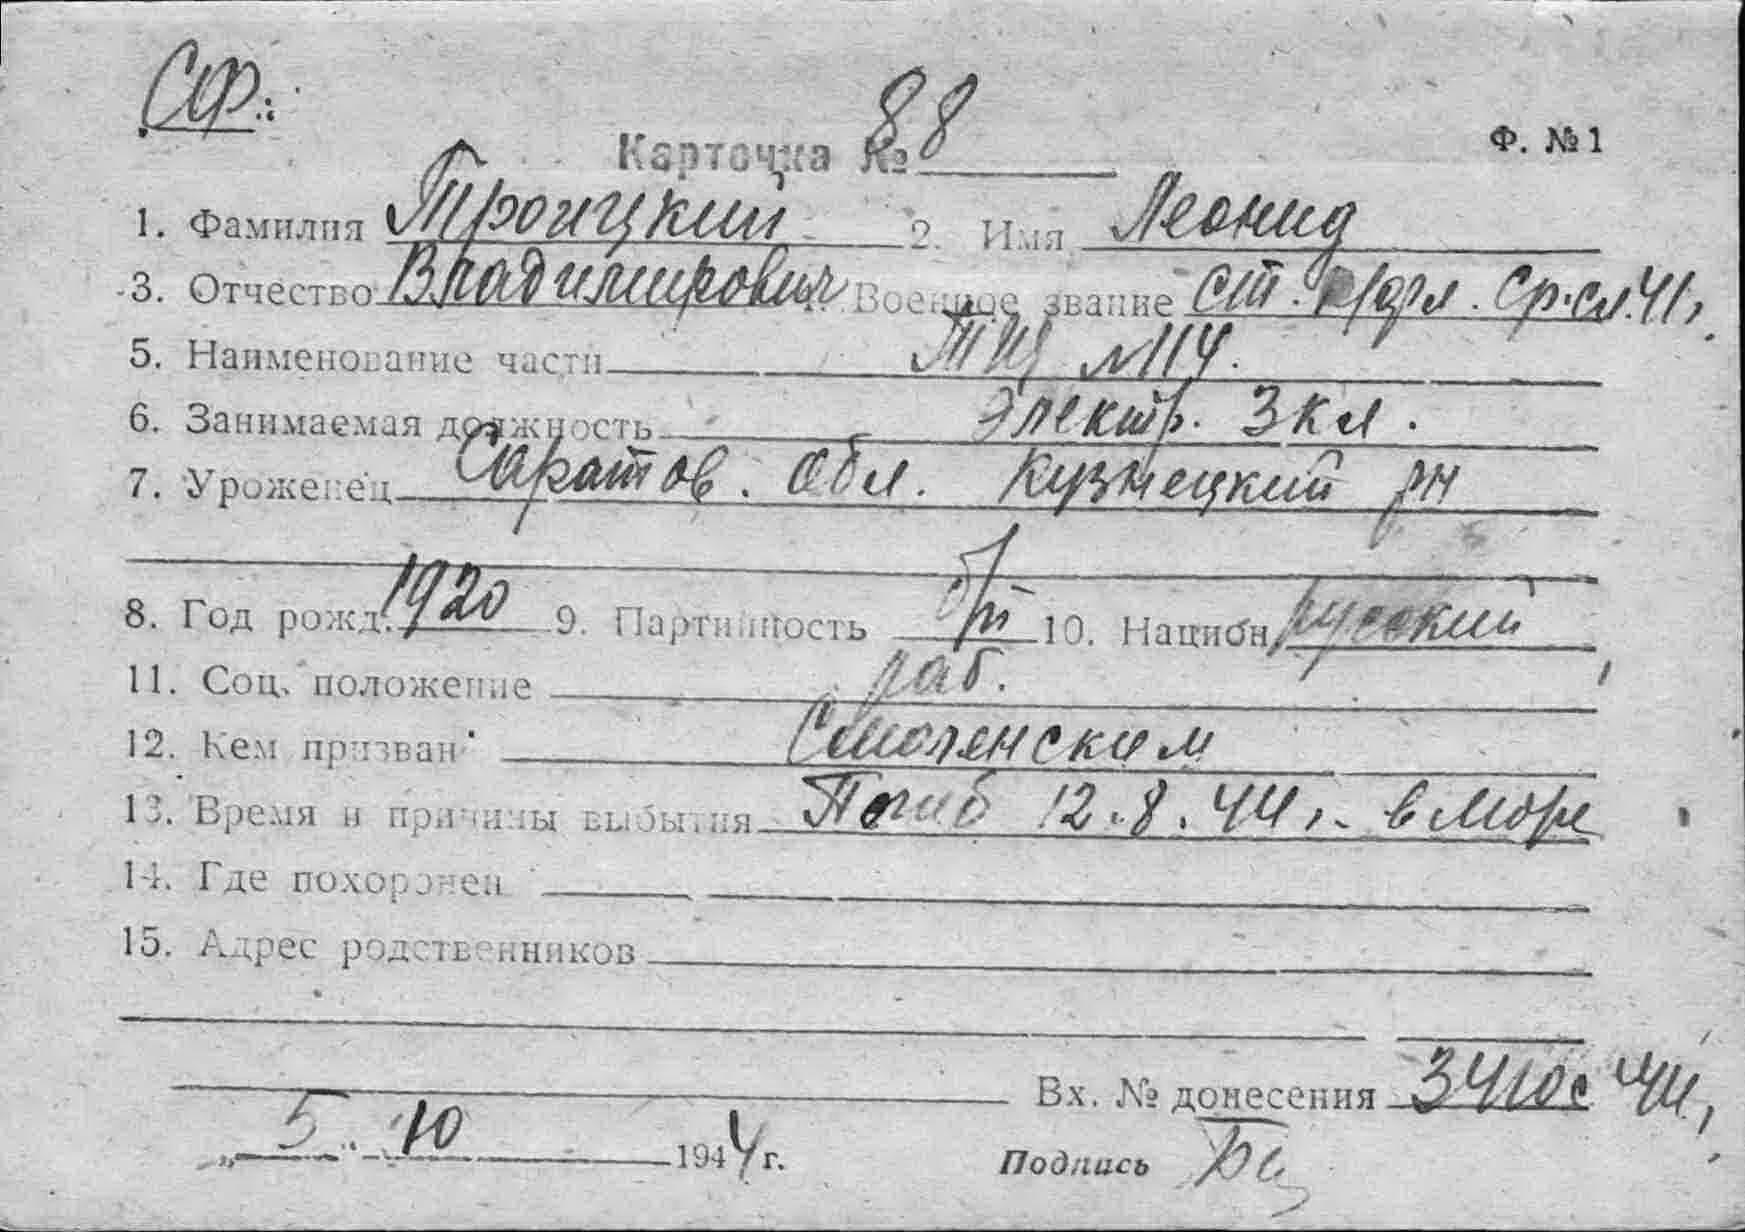 СФ.:
Карточка № 88 Ф. №1
1. Фамилия Троицкий 2. Имя Леонид
3. Отчество Владимирович Военное звание ст. кр. ср.сл. 41 г.
5. Наименование части ТЩ №114.
6. Занимаемая должность Электр. 3 кл.
7. Уроженец Саратов. обл. Кузнецкий рн
8. Год рожд. 1920 9. Партийность б/п 10. Национ русский
11. Соц. положение раб.
12. Кем призван Смоленским
13. Время и причины выбытия Погиб 12.8.44 г. в море
14. Где похоронен
15. Адрес родственников
Вх. № донесения 44 г.
„ 5 “ 10 1944 г. Подпись